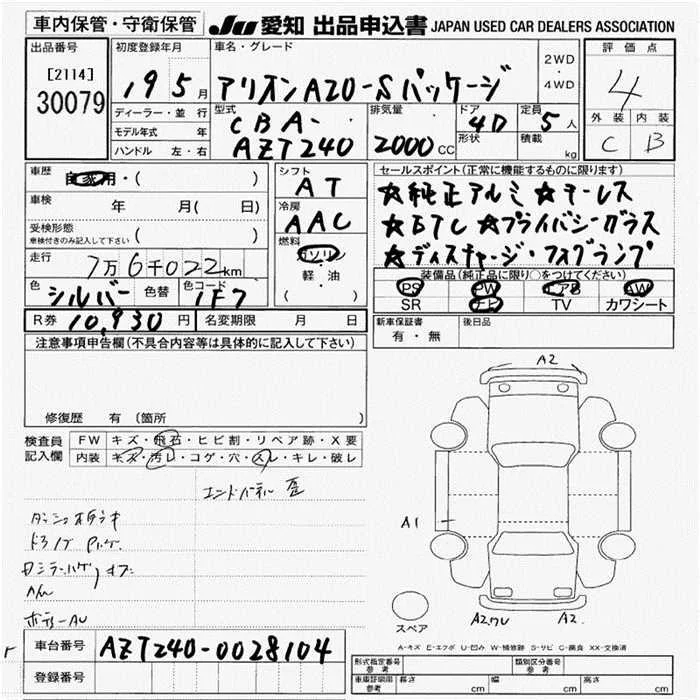 車内保管・守衛保管 JU 愛知 出品申込書 JAPAN USED CAR DEALERS ASSOCIATION
出品番号 初度登録年月 車名・グレード 評価点
[2114] 2WD
30079 19 5月 アリオンA20-Sパッケージ 4WD 4
ディーラー・並行 型式 排気量 ドア 定員 外装 内装
モデル年式 年 CBA- 4D 5人 C B
ハンドル 左・右 AZT240 2000CC 形状 積載 kg
車歴 自家用・( ) シフト AT セールスポイント(正常に機能するものに限ります)
車検 年 月( 日) 冷房 AAC ☆純正アルミ ☆キーレス
受検形態 ( ) ☆ETC ☆プライバシーガラス
車検付きのみ記入して下さい 燃料 ☆ディスチャージ・フォグランプ
走行 7万6千022km ガソリン 装備品(純正品に限り○をつけてください)
色 シルバー 色替 色コード 1F7 軽・油 PS PW エアB AW
( ) SR ナビ TV カワシート
R券 10,930円 名変期限 月 日 新車保証書 有・無 後日品
注意事項申告欄(不具合内容等は具体的に記入して下さい)
修復歴 有 (箇所 )
検査員 FW キズ・飛石・ヒビ割・リペア跡・X要
記入欄 内装 キズ・汚レ・コゲ・穴・スレ・キレ・破レ
A2
A1
A2
スペア
A-キズ E-エクボ U-凹み W-補修跡 S-サビ C-腐食 XX-交換済
車台番号 AZT240-0028104
登録番号
形式指定番号 参考 類別区分番号 参考
車庫証明用 参考 長さ cm 幅 cm 高さ cm